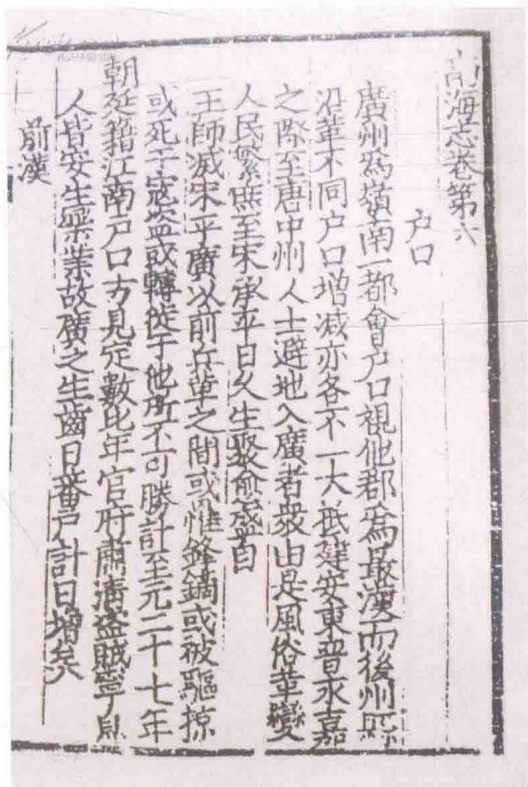 南海志卷第六
户口
廣州為嶺南一都會户口視他郡為最漢而後州縣
沿革不同户口增減亦各不一大抵建安東晉永嘉
之際至唐中州人士避地入廣者衆由是風俗革變
人民繁庶至宋承平日久生聚愈盛自
王師滅宋平廣以前兵革之間或罹鋒鏑或被驅掠
或死于寇盗或轉徙于他所不可勝計至元二十七年
朝廷籍江南户口方見定數比年官府肅清盗賊寧息
人皆安生樂業故廣之生齒日蕃户計日増矣
前漢